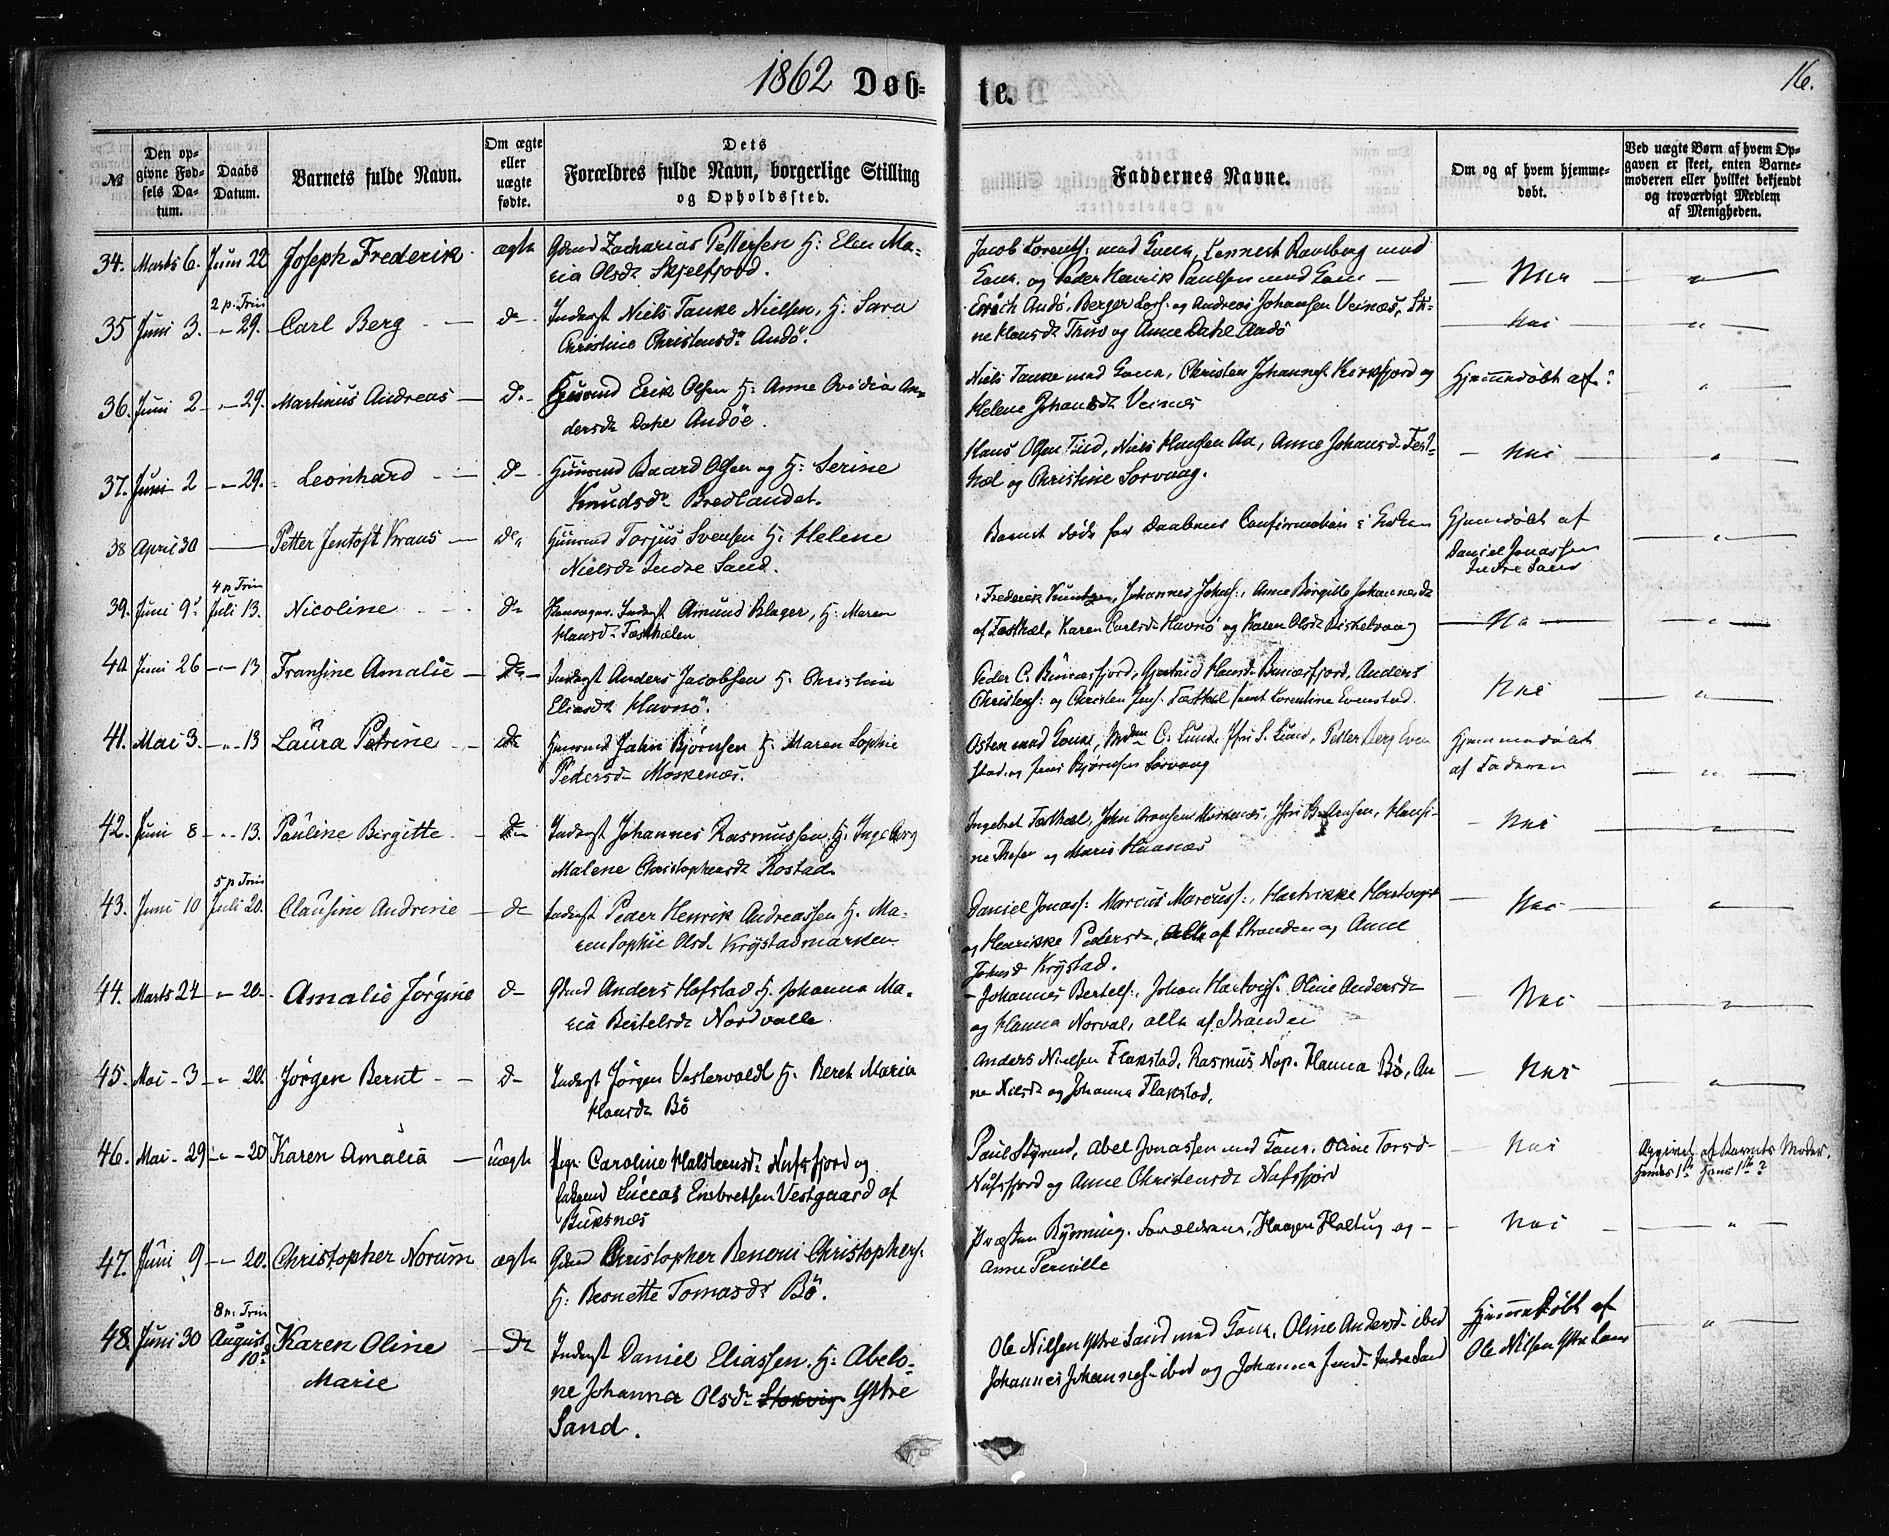 1862 Døb-
te.
16.
№
Den op-
givne Fød-
sels Da-
tum.
Daabs
Datum.
Barnets fulde Navn.
Om ægte
eller
uægte
fødte.
Dets
Forældres fulde Navn, borgerlige Stilling
og Opholdssted.
Faddernes Navne.
Om og af hvem hjemme-
døbt.
Ved uægte Børn af hvem Op-
gaven er skeet, enten Barne-
moderen eller hvilket bekjendt
og troværdigt Medlem
af Menigheden.
34. Marts 6. Juni 22 Joseph Frederik ægte Gmd Zacharias Pettersen H: Elen Ma-
ria Olsdr Skjelfjord.
Jacob Lorents. med Kona, Lennert Ravlberg med
Kona og Peder Henrik Paulsen med Kone
Nei
2 p. Trin
35 Juni 3. " 29. Carl Berg d- Inderst Niels Tanke Nielsen, H: Sara
Christine Christensdr Andö.
Andö, Berger og Andreas Johansen Veinæs,
ne Hansdr og Anne Dahl Andö
Nei
36. Juni 2 " 29. Martinus Andreas d- Huusmd Erik Olsen H: Anne Ovidia An-
dersdr Dahl Andöe.
Niels Tanke med Kona, Christen Johannes. Kirkfjord og
Helene Johansdr Veines
Hjemmedöbt af?
37. Juni 2 " 29. Leonhard d- Huusmd Baard Olsen og H: Serine
Knudsdr Bredlandet.
Hans Olsen Tind, Niels Hansen Aa, Anne Johansd Fest-
hæl og Christine Sorvaag.
Nei
38 April 30 Petter Jentoft Kraus do Huusmd Torjus Svensen H: Helene
Nielsdr Indre Sand.
Barnet döde før Daabens Confirmation i Kirken
Hjemdöbt af
Daniel Jonassen
Indre Sand
4 p Trin
39. Juni 9. Juli 13. Nicoline d- Inderst Amund Blager, H: Maren
Hansdr Fæsthælen
Frederik Kuntzen, Johannes Johns., Anne Birgitte Johannesdr
af Fæsthæl, Karen Carlsdr Havnö og Karen Olsdr Biskelvaag
Nei
40 Juni 26 " 13 Fransine Amalie do Inderst Anders Jacobsen H. Christine
Eliasdr Havnö.
Peder C. Bunæsfjord, Gjertrud Hansdr Bunæsfjord, Anders
Christens: og Christen Jens. Fæsthæl samt Lorentine Evenstad.
Nei
41. Mai 3. " 13 Laura Petrine do Huusmd John Björnsen H. Maren Sophie
Pedersdr Moskenæs.
Osten med Kone, Mdm C. Lund, Jfr S. Lund, Petter Berg Even
stad og Jens Björnsen Sorvaag
Hjemmedöbt
af Faderen
42. Juni 8 " 13. Pauline Birgitte do Inderst Johannes Rasmussen H. Ingeborg
Malene Christophersdr Rostad.
Ingebret Fæsthæl, John Aronsen Moskenæs, Jfr B. Arnsen, Hansi-
ne og Maris
Nei
5 p Trin
43. Juni 10 Juli 20. Clausine Andrine d- Inderst Peder Henrik Andreassen H. Ma-
ren Sophie Olsd. Krystadmarken
Daniel Jonass. Marcus Marcuss., Hartvikke Hartvigs
og Henrikke Pedersdr, alle af Stranden og Anne
Johnsd Krystad.
Nei
44. Marts 24 " 20. Amalie Jørgine d- Gmd Anders Hofstad H. Johanna Ma-
ria Bertelsdr Nordvalle
Johannes Bertels., Johan Hartvigs. Oline Andersdr
og Hanna Norval, alle af Stranden
Nei
45. Mai 3 " 20. Jørgen Bernt d- Inderst Jørgen Vestervold H. Beret Maria
Hansdr Bö
Anders Nielsen Flakstad, Rasmus Nap. Hanna Bö, An
ne Nilsdr og Johanna Flakstad.
Nei
46. Mai 29 " 20 Karen Amalia uægte Pige Caroline Halsteensdr Nufsfjord og
Luccas Enbretsen Vestgaard af
Buksnæs
Paul Styrmd, Abel Jonassen med Kone, Oline Torsdr
Nufsfjord og Anne Christensdr Nufsfjord
Nei
Opgivet af Barnets Moder.
Hendes 1ste Hans 1ste?
47. Juni 9 " 20. Christopher Norum ægte Gmd Christopher Benoni Christophers.
H: Bernette Tomasdr Bö.
Præsten Rynning. Forældrene, Haagen Holtug og
Anne Pernille
Nei
8 p: Trin
48. Juni 30 August 10. Karen Oline
Marie
do Inderst Daniel Eliassen H: Abelo-
ne Johanna Olsdr Stokvig Ystre
Sand.
Ole Nilsen Ystre Sand med Kona, Oline Andersdr ibid
Johannes Johannes. ibid og Johanna Jensdr Indre Sand
Hjemmedöbt af
Ole Nilsen Ystre Sand